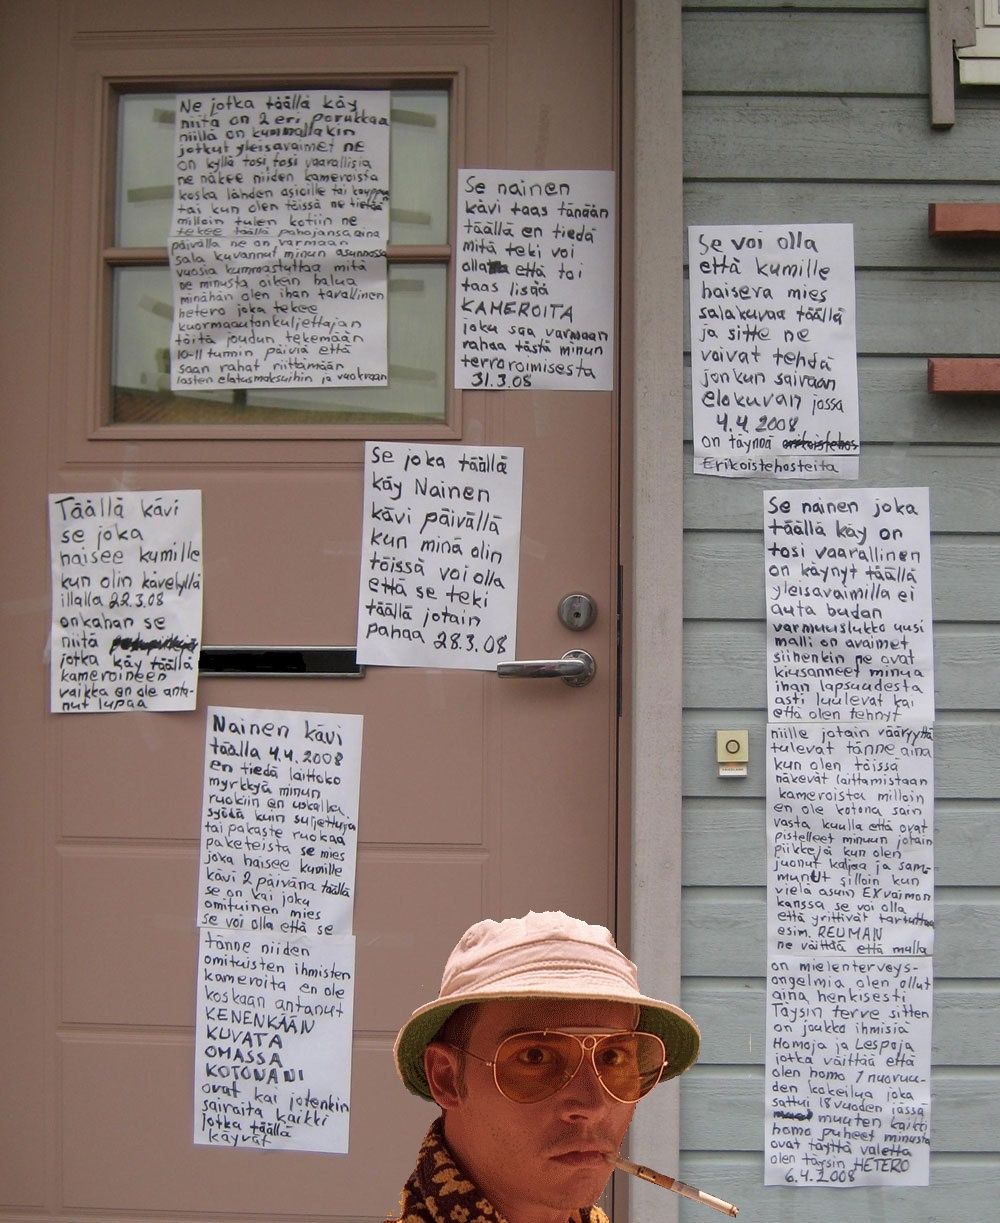 Ne jotka täällä käy
niitä on 2 eri porukkaa
niillä on kummallakin
jotkut yleisavaimet ne
on kyllä tosi, tosi vaarallisia
ne näkee niiden kameroista
koska lähden asioille tai kauppaa
tai kun olen töissä ne tietää
milloin tulen kotiin ne
tekee täällä pahojansa aina
päivällä ne on varmaan
sala kuvannut minun asunnossa
vuosia kummastuttaa mitä
ne minusta oikein halua
minähän olen ihan tavallinen
hetero joka tekee
kuormaautonkuljettajan
töitä joudun tekemään
10-11 tunnin päiviä että
saan rahat riittämään
lasten elatusmaksuihin ja vuokraan
Se nainen
kävi taas tänään
täällä en tiedä
mitä teki voi
olla että toi
taas lisää
KAMEROITA
joku saa varmaan
rahaa tästä minun
terroroimisesta
31.3.08
Se voi olla
että kumille
haiseva mies
salakuvaa täällä
ja sitte ne
voivat tehdä
jonkun sairaan
elokuvan jossa
4.4.2008
on täynnä
Erikoistehosteita
Se joka täällä
käy Nainen
kävi päivällä
kun minä olin
töissä voi olla
että se teki
täällä jotain
pahaa 28.3.08
Täällä kävi
se joka
haisee kumille
kun olin kävelyllä
illalla 22.3.08
onkohan se
niitä
jotka käy täällä
kameroineen
vaikka en ole anta-
nut lupaa
Se nainen joka
täällä käy on
tosi vaarallinen
on käynyt täällä
yleisavaimilla ei
auta budan
varmuuslukko uusi
malli on avaimet
siihenkin ne ovat
kiusanneet minua
ihan lapsuudesta
asti luulevat kai
että olen tehnyt
niille jotain vääryyttä
tulevat tänne aina
kun olen töissä
näkevät laittamistaan
kameroista milloin
en ole kotona sain
vasta kuulla että ovat
pistelleet minuun jotain
piikkejä kun olen
juonut kaljaa ja sam-
munut silloin kun
vielä asuin EXvaimon
kanssa se voi olla
että yrittivät tartuttaa
esim. REUMAN
ne väittää että mulla
on mielenterveys-
ongelmia olen ollut
aina henkisesti
Täysin terve sitten
on joukko ihmisiä
Homoja ja Lespoja
jotka väittää että
olen homo 1 nuoruu-
den kokeilua joka
sattui 18 vuoden iässä
muuten kaikki
homo puheet minusta
ovat täyttä valetta
olen täysin HETERO
6.4.2008
Nainen kävi
täällä 4.4.2008
en tiedä laittoko
myrkkyä minun
ruokiin en uskalla
syödä kuin suljettuja
tai pakaste ruokaa
paketeista se mies
joka haisee kumille
kävi 2 päivänä täällä
se on kai joku
omituinen mies
se voi olla että se
tänne niiden
omituisten ihmisten
kameroita en ole
koskaan antanut
KENENKÄÄN
KUVATA
OMASSA
KOTONANI
ovat kai jotenkin
sairaita kaikki
jotka täällä
käyvät